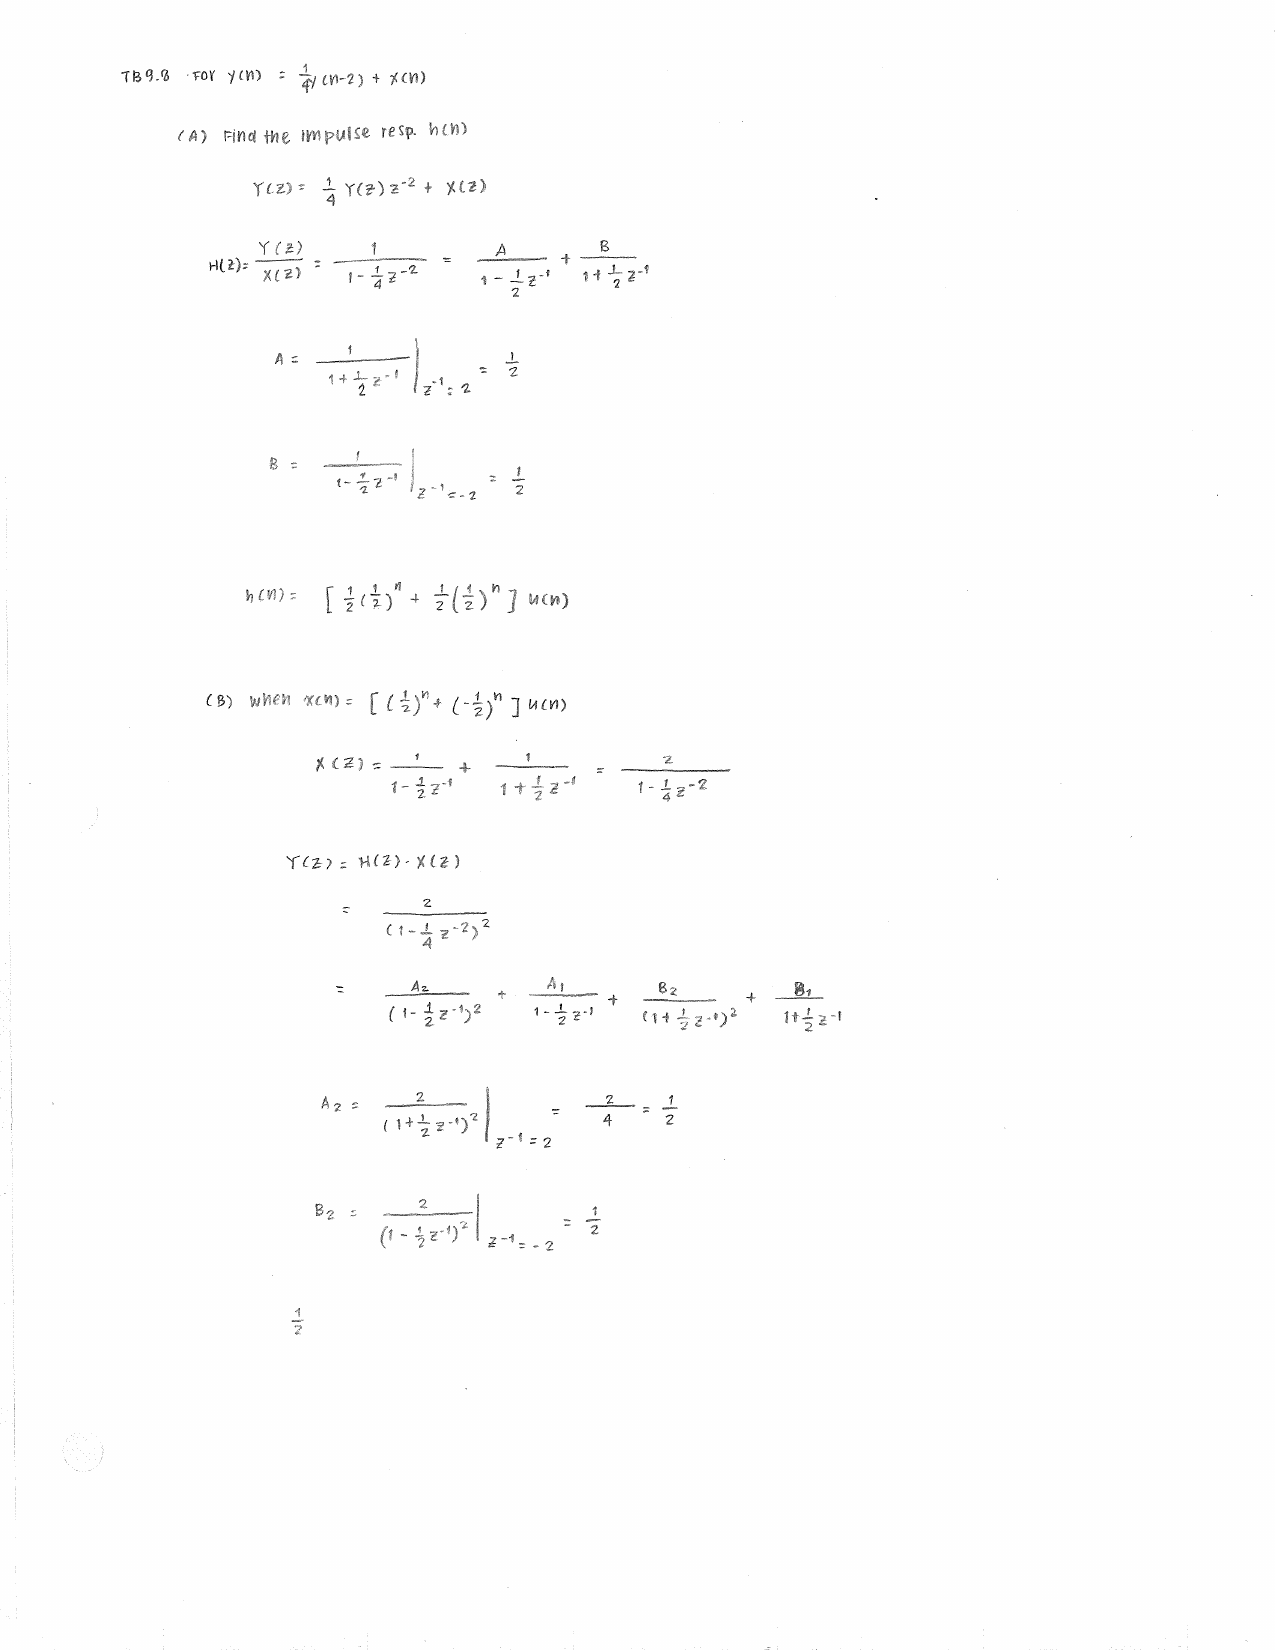 TB9.8 FOR y(n) = 1/4 y(n-2) + x(n)
(A) Find the impulse resp. h(n)
Y(z) = 1/4 Y(z) z^-2 + X(z)
H(z) = Y(z)/X(z) = 1/(1 - 1/4 z^-2) = A/(1 - 1/2 z^-1) + B/(1 + 1/2 z^-1)
A = 1/(1 + 1/2 z^-1) | z^-1 = 2 = 1/2
B = 1/(1 - 1/2 z^-1) | z^-1 = -2 = 1/2
h(n) = [ 1/2 (1/2)^n + 1/2 (1/2)^n ] u(n)
(B) when x(n) = [ (1/2)^n + (-1/2)^n ] u(n)
X(z) = 1/(1 - 1/2 z^-1) + 1/(1 + 1/2 z^-1) = 2/(1 - 1/4 z^-2)
Y(z) = H(z) · X(z)
= 2/(1 - 1/4 z^-2)^2
= A2/(1 - 1/2 z^-1)^2 + A1/(1 - 1/2 z^-1) + B2/(1 + 1/2 z^-1)^2 + B1/(1 + 1/2 z^-1)
A2 = 2/(1 + 1/2 z^-1)^2 | z^-1 = 2 = 2/4 = 1/2
B2 = 2/(1 - 1/2 z^-1)^2 | z^-1 = -2 = 1/2
1/2